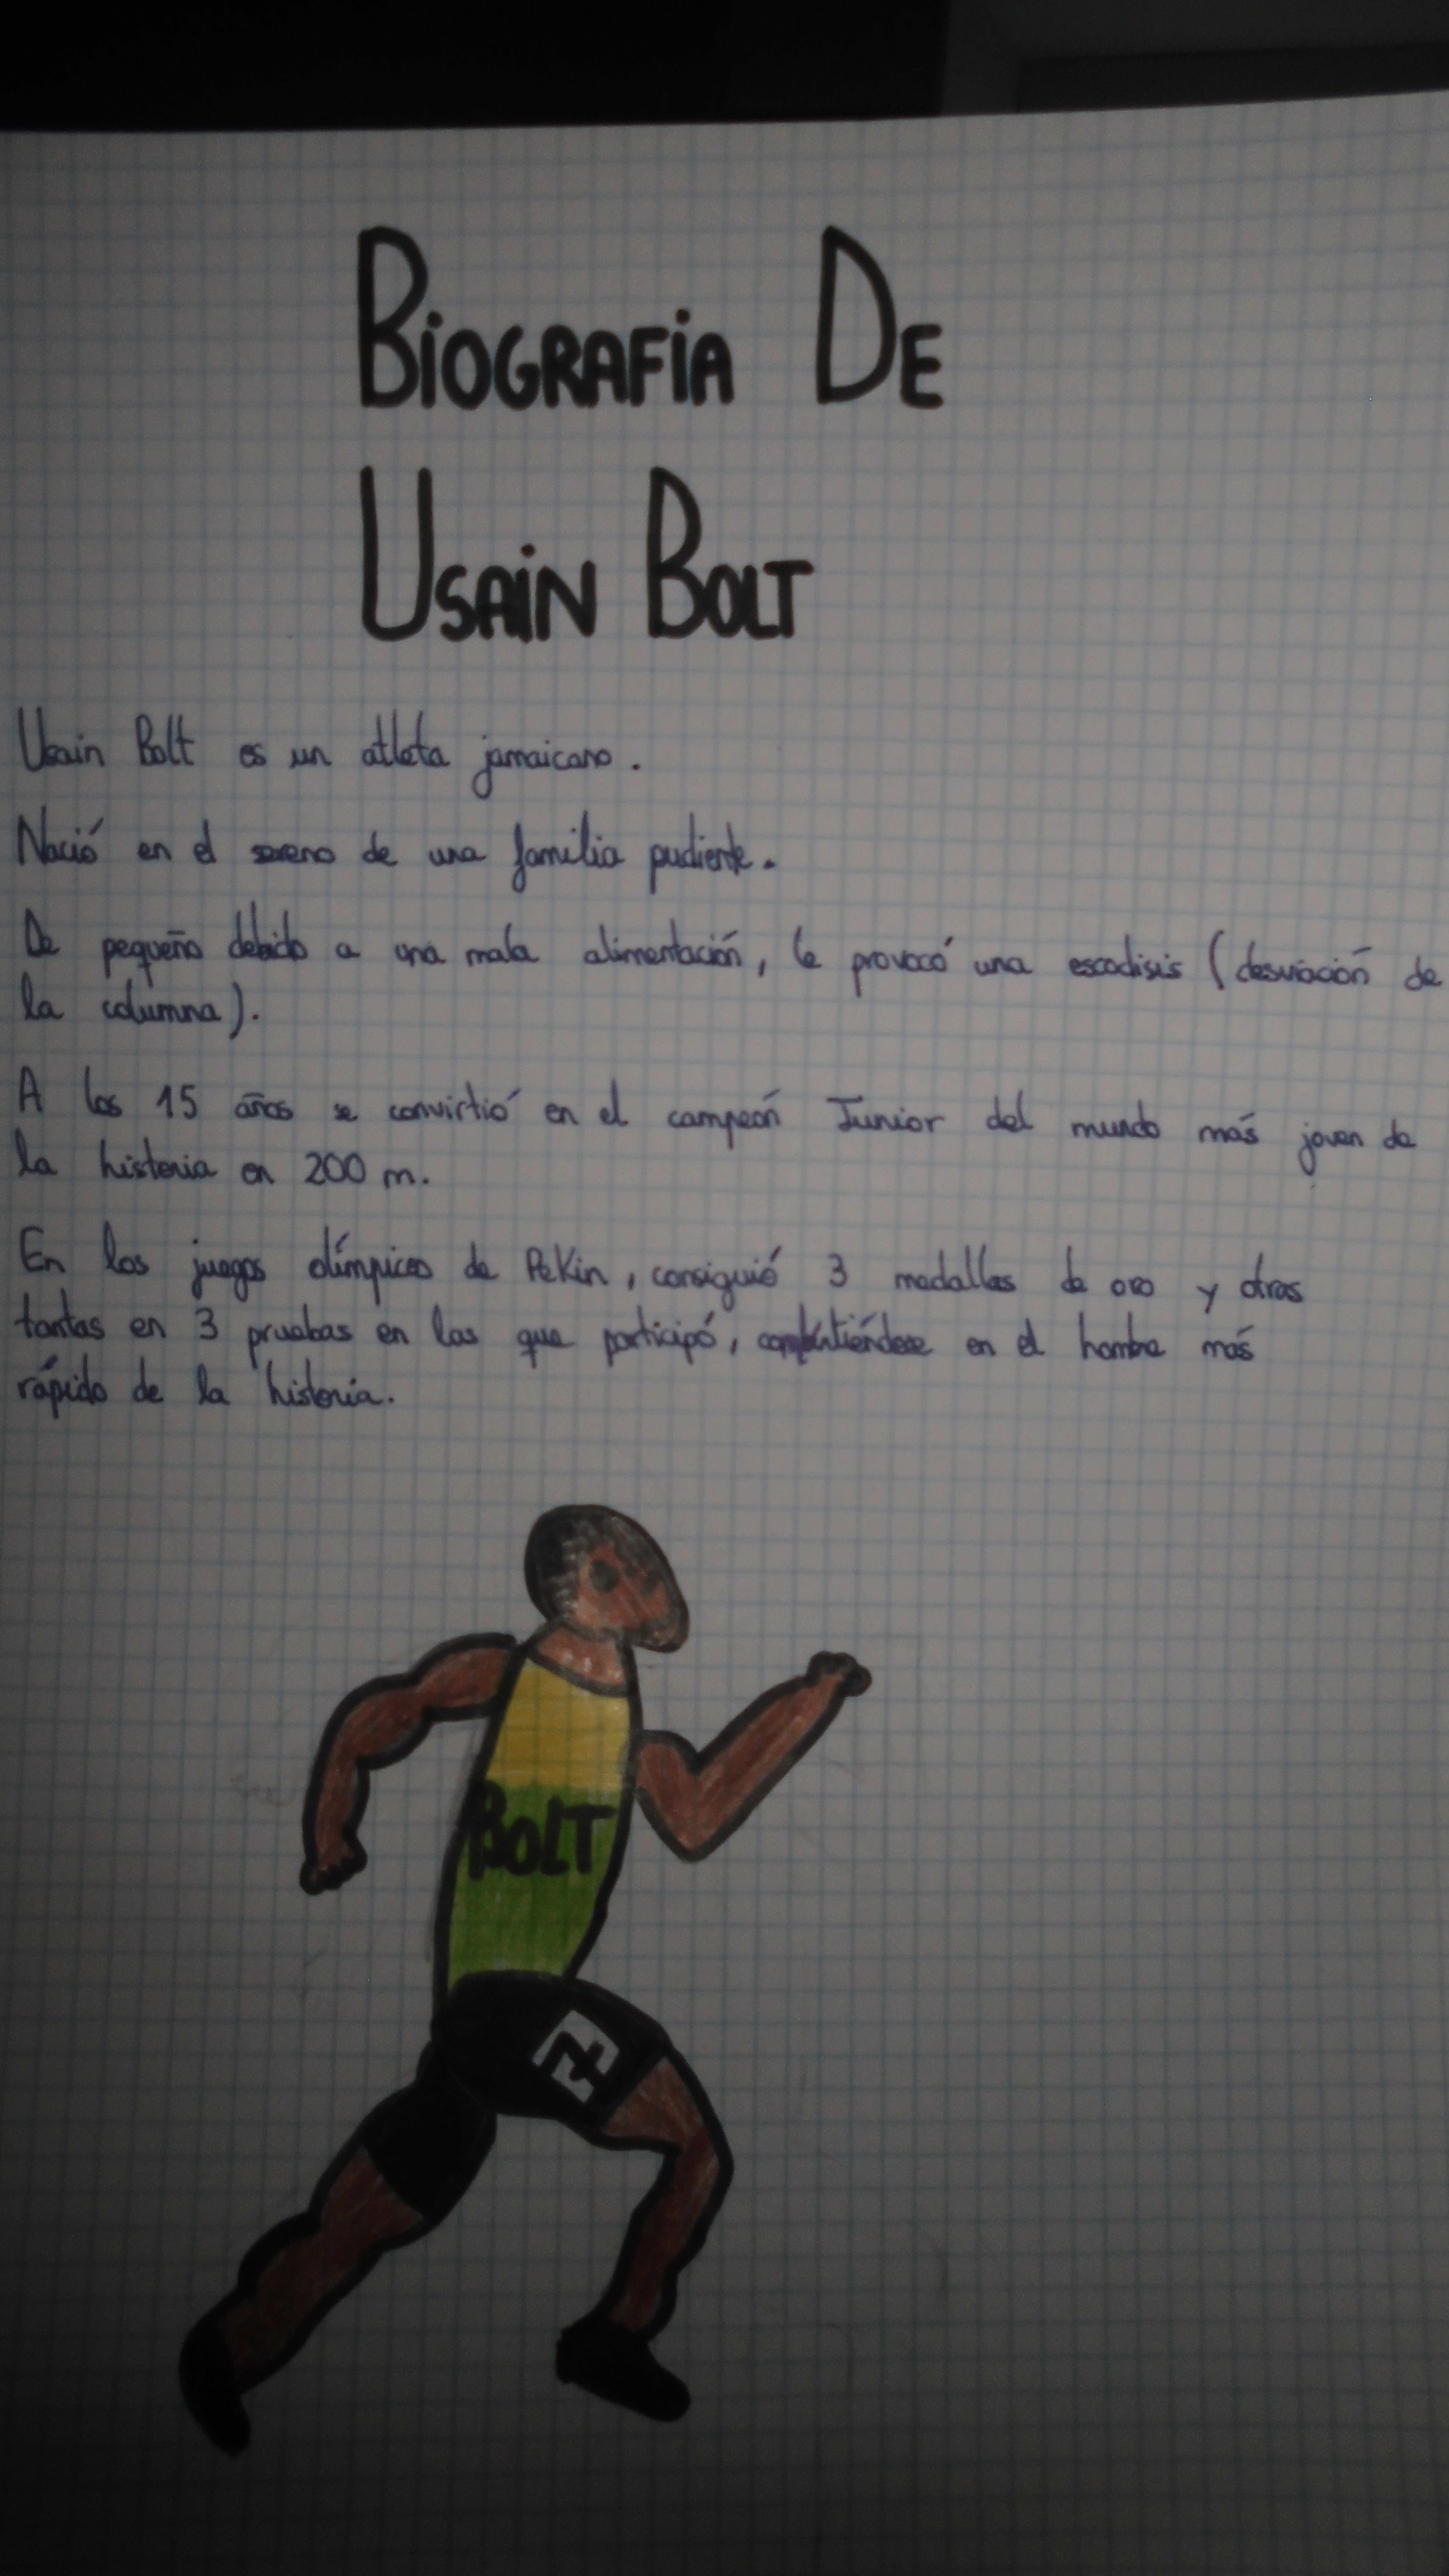 BIOGRAFIA DE
USAIN BOLT
Usain Bolt es un atleta jamaicano.
Nació en el sereno de una familia pudiente.
De pequeño debido a una mala alimentación, le provocó una escodisis (desviación de
la columna).
A los 15 años se convirtió en el campeón Junior del mundo más joven de
la historia en 200 m.
En los juegos olímpicos de Pekin, consiguió 3 medallas de oro y otras
tantas en 3 pruebas en las que participó, en el hombre más
rápido de la historia.
BOLT
7